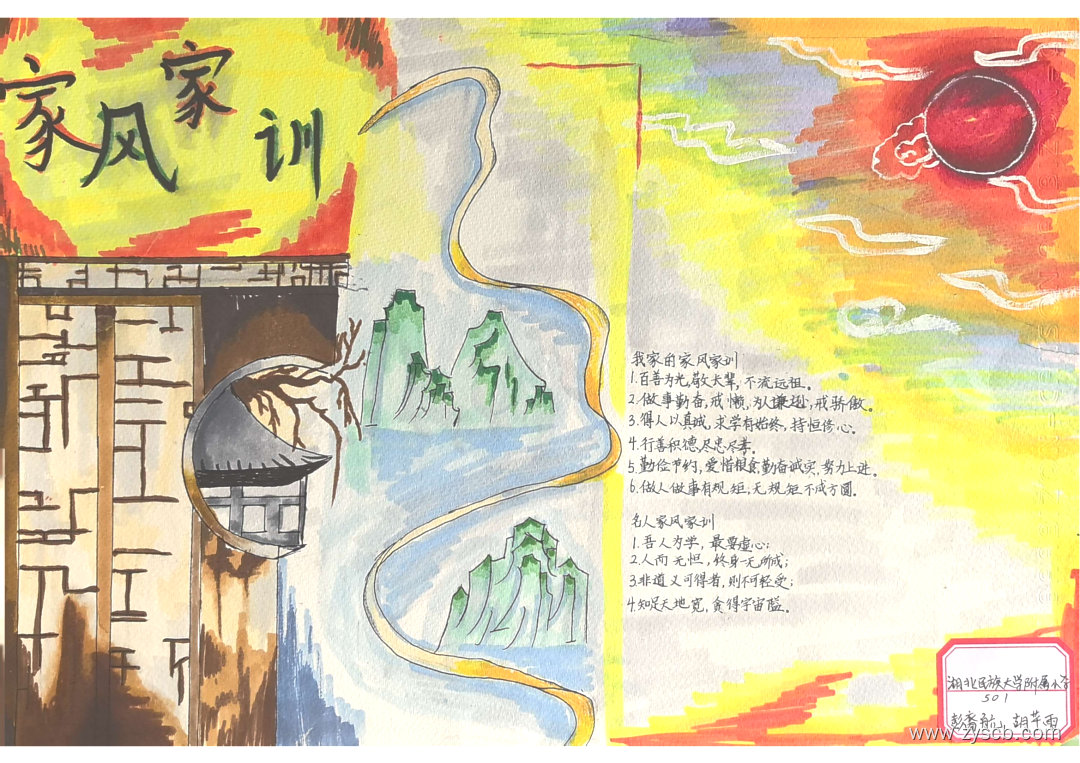 家风家训
我家的家风家训
1.百善为先,敬大辈,不流远祖。
2.做事勤奋,戒懒,为人谦逊,戒骄傲。
3.得人以真诚,求学有始终,持恒修心。
4.行善积德,尽忠尽孝。
5.勤俭节约,爱惜粮食,勤奋诚实,努力上进。
6.做人做事有规矩,无规矩不成方圆。
名人家风家训
1.吾人为学,最要虚心;
2.人而无恒,终身一无所成;
3.非道义可得者,则不可轻受;
4.知足天地宽,贪得宇宙隘。
湖北民族大学附属小学
501
彭 航 胡 雨
www.zyscb.com